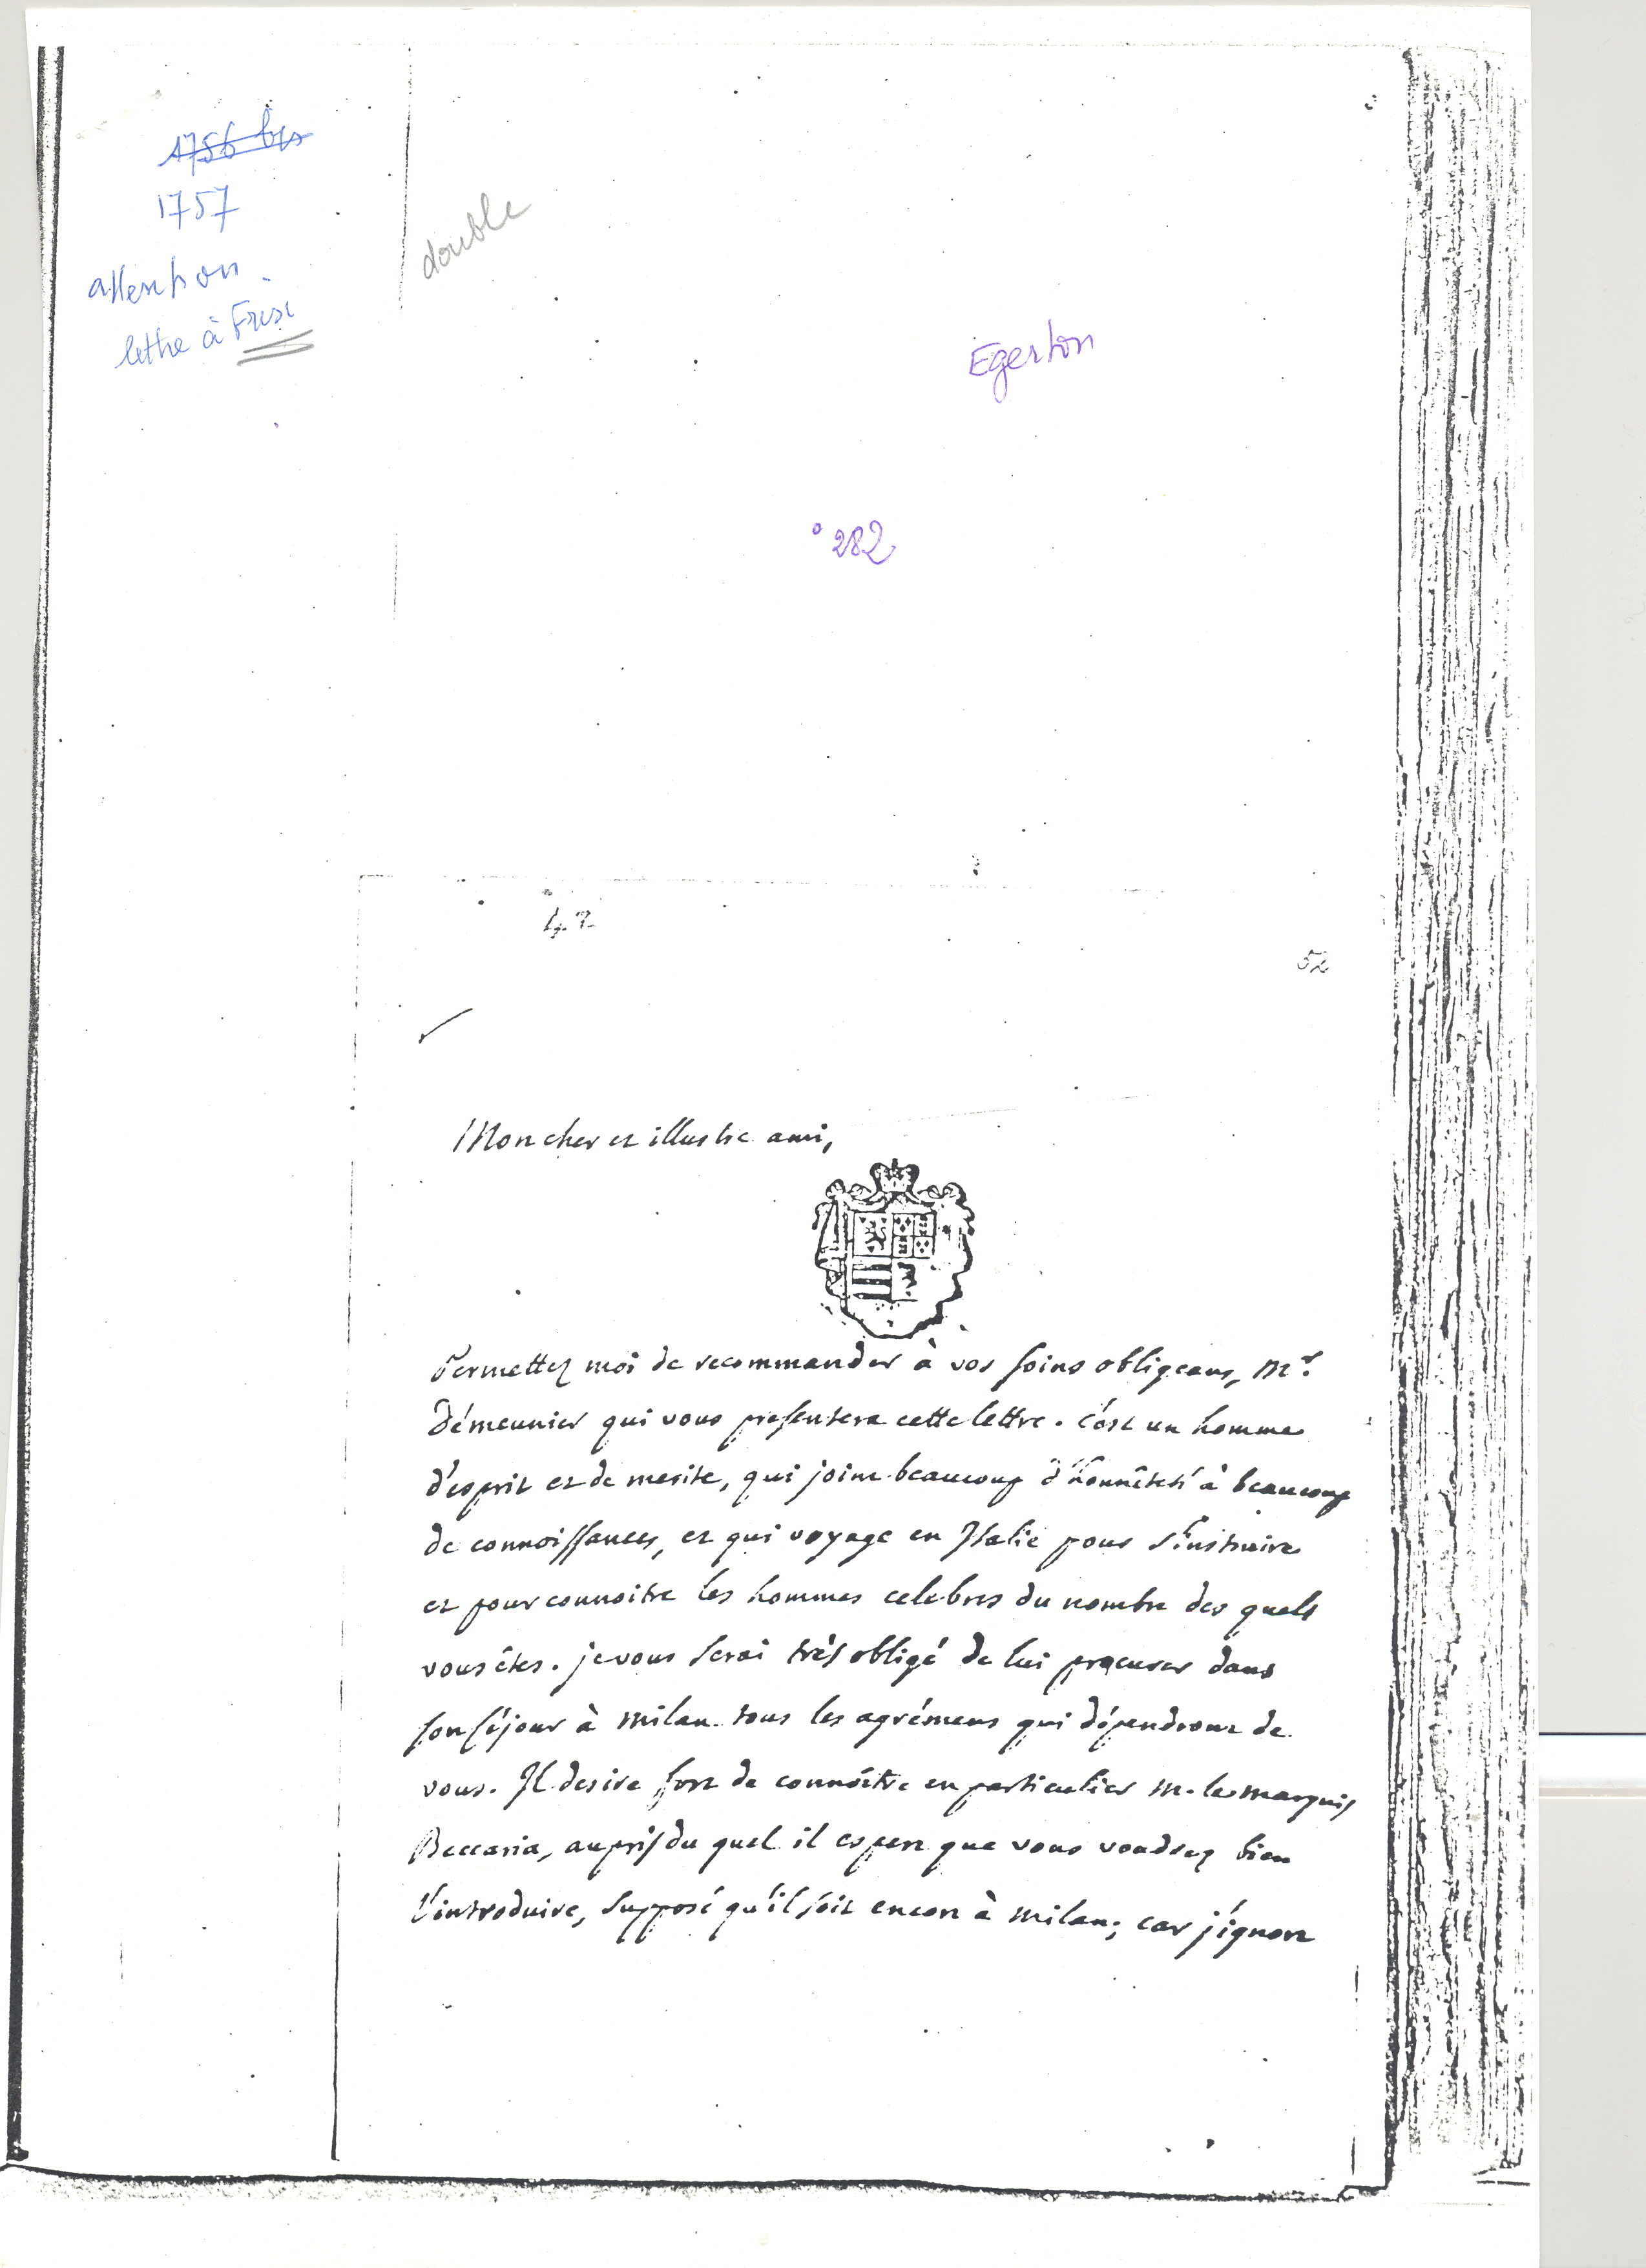 1756 bis
1757
attention
lettre à Frisi
double
Egerton
282
52
Mon cher et illustre ami,
Permettez moi de recommander à vos soins obligeans, Mr.
Démeunier qui vous presentera cette lettre. c'est un homme
d'esprit et de merite, qui joint beaucoup d'honnêteté à beaucoup
de connoissances, et qui voyage en Italie pour s'instruire
et pour connoitre les hommes celebres du nombre des quels
vous êtes. je vous serai très obligé de lui procurer dans
son séjour à milan tous les agrémens qui dépendront de
vous. Il desire fort de connoître en particulier m. le marquis
Beccaria, auprès du quel il espere que vous voudrez bien
l'introduire, supposé qu'il soit encore à milan; car j'ignore